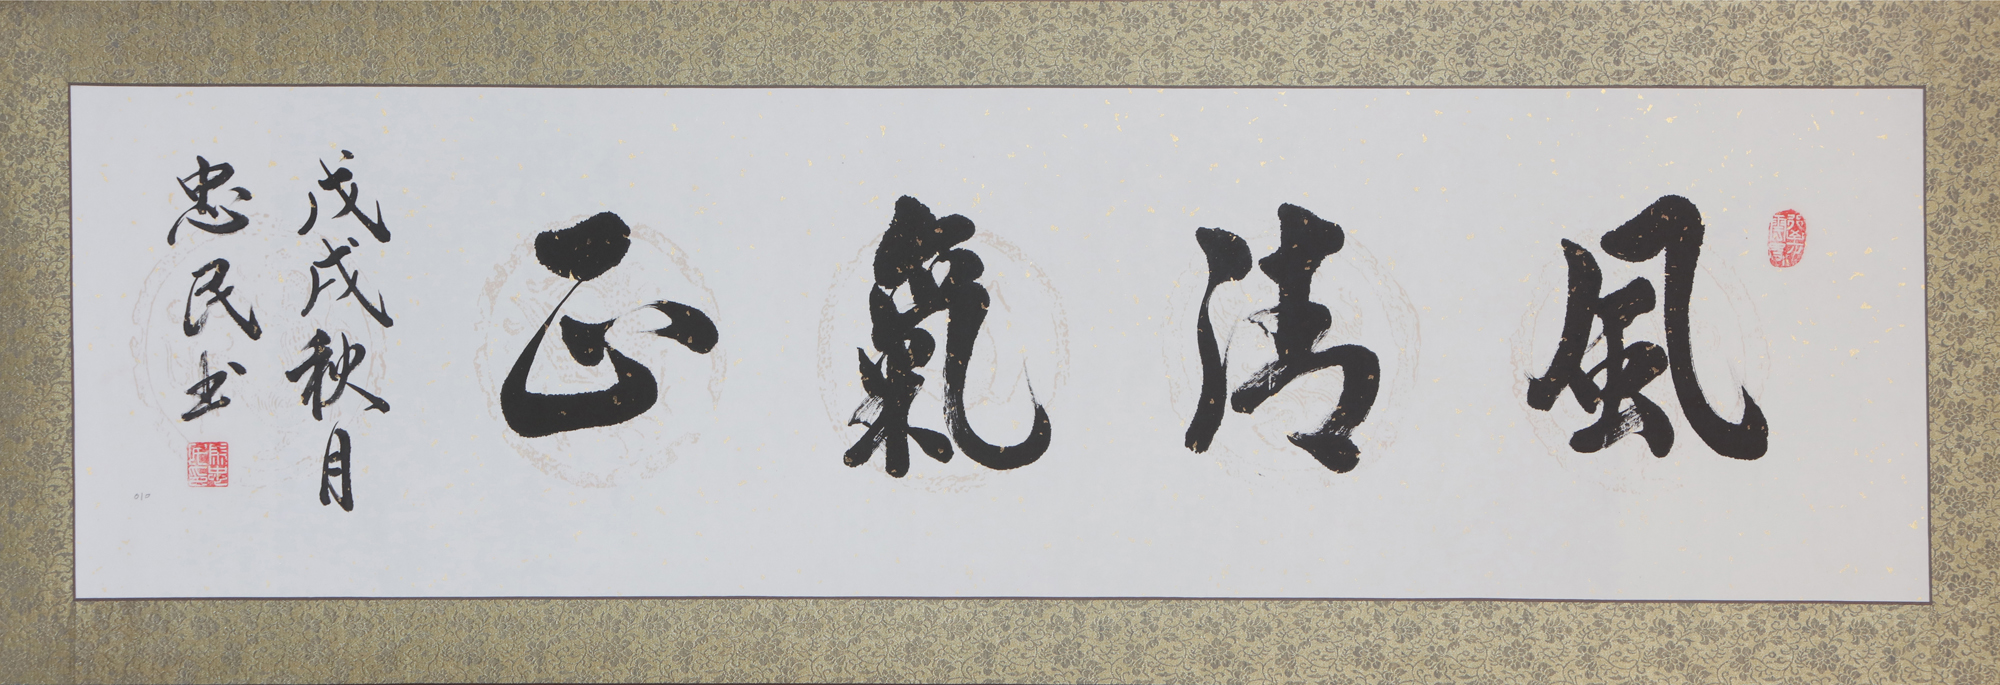 風清氣正
戊戌秋月
忠民书
010